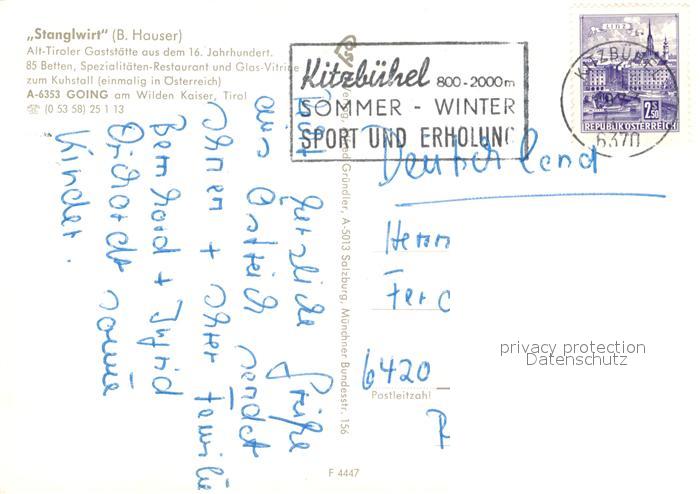 „Stanglwirt" (B. Hauser)
Alt-Tiroler Gaststätte aus dem 16. Jahrhundert.
85 Betten, Spezialitäten-Restaurant und Glas-Vitrine
zum Kuhstall (einmalig in Österreich)
A-6353 GOING am Wilden Kaiser, Tirol
☏ (0 53 58) 25 1 13
Kitzbühel 800-2000m
SOMMER - WINTER
SPORT UND ERHOLUNG
LINZ
2.50
REPUBLIK ÖSTERREICH
KITZBÜHEL
6370
Deutschland
Herrn
Ferc
6420
Postleitzahl
F
privacy protection
Datenschutz
herzliche Grüße
aus Östreich sendet
Ihnen + Ihrer Familie
Bernhard + Ingrid
sowie
Kinder.
Gründler, A-5013 Salzburg, Münchner Bundesstr. 156
F 4447